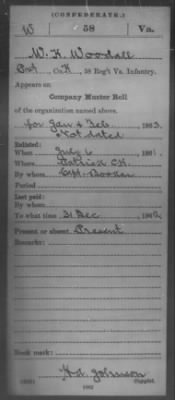 (CONFEDERATE.)
W 58 Va.
W. H. Woodall
Co. K, 58 Reg't Va. Infantry.
Appears on
Company Muster Roll
of the organization named above,
for Jan & Feb, 1863.
Not dated
Enlisted:
When July 6, 186
Where Patrick C.H.
By whom Capt. Booker
Period
Last paid:
By whom
To what time 31 Dec, 1862
Present or absent Present
Remarks:
Book mark:
H. L. Johnson
Copyist.